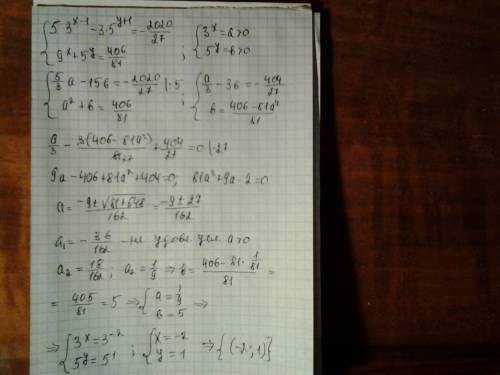 { 5·3^(x-1) - 3·5^(y+1) = - 2020/27
{ 9^x + 5^y = 406/81 ; { 3^x = a > 0
{ 5^y = b > 0
{ 5/3 a - 15b = - 2020/27 |:5 ; { a/3 - 3b = - 404/27
{ a² + b = 406/81 { b = (406 - 81a²)/81
a/3 - 3(406 - 81a²)/81 27 + 404/27 = 0 |·27
9a - 406 + 81a² + 404 = 0; 81a² + 9a - 2 = 0
a = (-9 ± √(81 + 648))/162 = (-9 ± 27)/162
a₁ = - 36/162 - не удовл. усл. a > 0
a₂ = 18/162 ; a₂ = 1/9 ⇒ b = (406 - 81 · 1/81)/81 =
= 405/81 = 5 ⇒ { a = 1/9
{ b = 5 ⇒
⇒ { 3^x = 3^(-2) ; { x = -2 ⇒ {(-2; 1)}
{ 5^y = 5^1 { y = 1